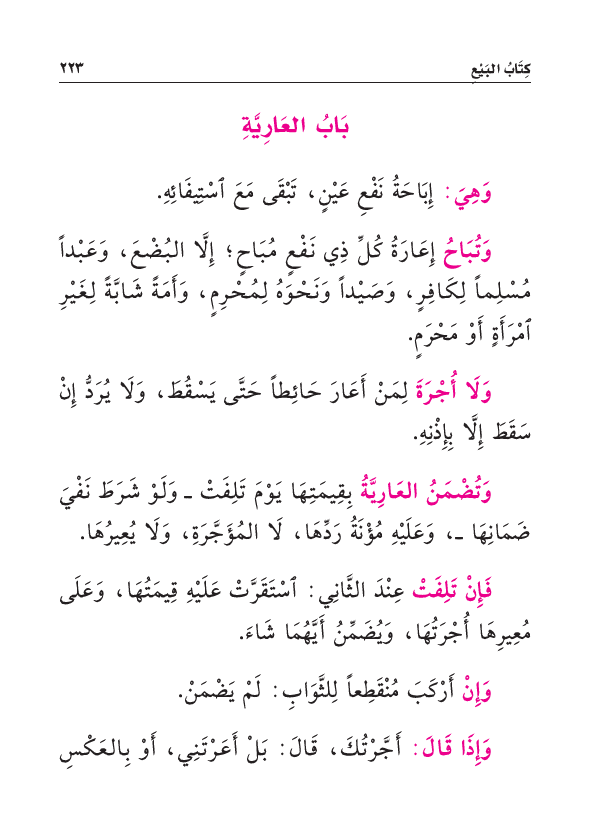 كِتَابُ البَيْعِ ٢٢٣
بَابُ العَارِيَّةِ
وَهِيَ: إِبَاحَةُ نَفْعِ عَيْنٍ، تَبْقَى مَعَ ٱسْتِيفَائِهِ.
وَتُبَاحُ إِعَارَةُ كُلِّ ذِي نَفْعٍ مُبَاحٍ؛ إِلَّا البُضْعَ، وَعَبْداً
مُسْلِماً لِكَافِرٍ، وَصَيْداً وَنَحْوَهُ لِمُحْرِمٍ، وَأَمَةً شَابَّةً لِغَيْرِ
ٱمْرَأَةٍ أَوْ مَحْرَمٍ.
وَلَا أُجْرَةَ لِمَنْ أَعَارَ حَائِطاً حَتَّى يَسْقُطَ، وَلَا يُرَدُّ إِنْ
سَقَطَ إِلَّا بِإِذْنِهِ.
وَتُضْمَنُ العَارِيَّةُ بِقِيمَتِهَا يَوْمَ تَلِفَتْ ـ وَلَوْ شَرَطَ نَفْيَ
ضَمَانِهَا ـ، وَعَلَيْهِ مُؤْنَةُ رَدِّهَا، لَا المُؤَجَّرَةِ، وَلَا يُعِيرُهَا.
فَإِنْ تَلِفَتْ عِنْدَ الثَّانِي: ٱسْتَقَرَّتْ عَلَيْهِ قِيمَتُهَا، وَعَلَى
مُعِيرِهَا أُجْرَتُهَا، وَيُضَمِّنُ أَيَّهُمَا شَاءَ.
وَإِنْ أَرْكَبَ مُنْقَطِعاً لِلثَّوَابِ: لَمْ يَضْمَنْ.
وَإِذَا قَالَ: أَجَّرْتُكَ، قَالَ: بَلْ أَعَرْتَنِي، أَوْ بِالعَكْسِ